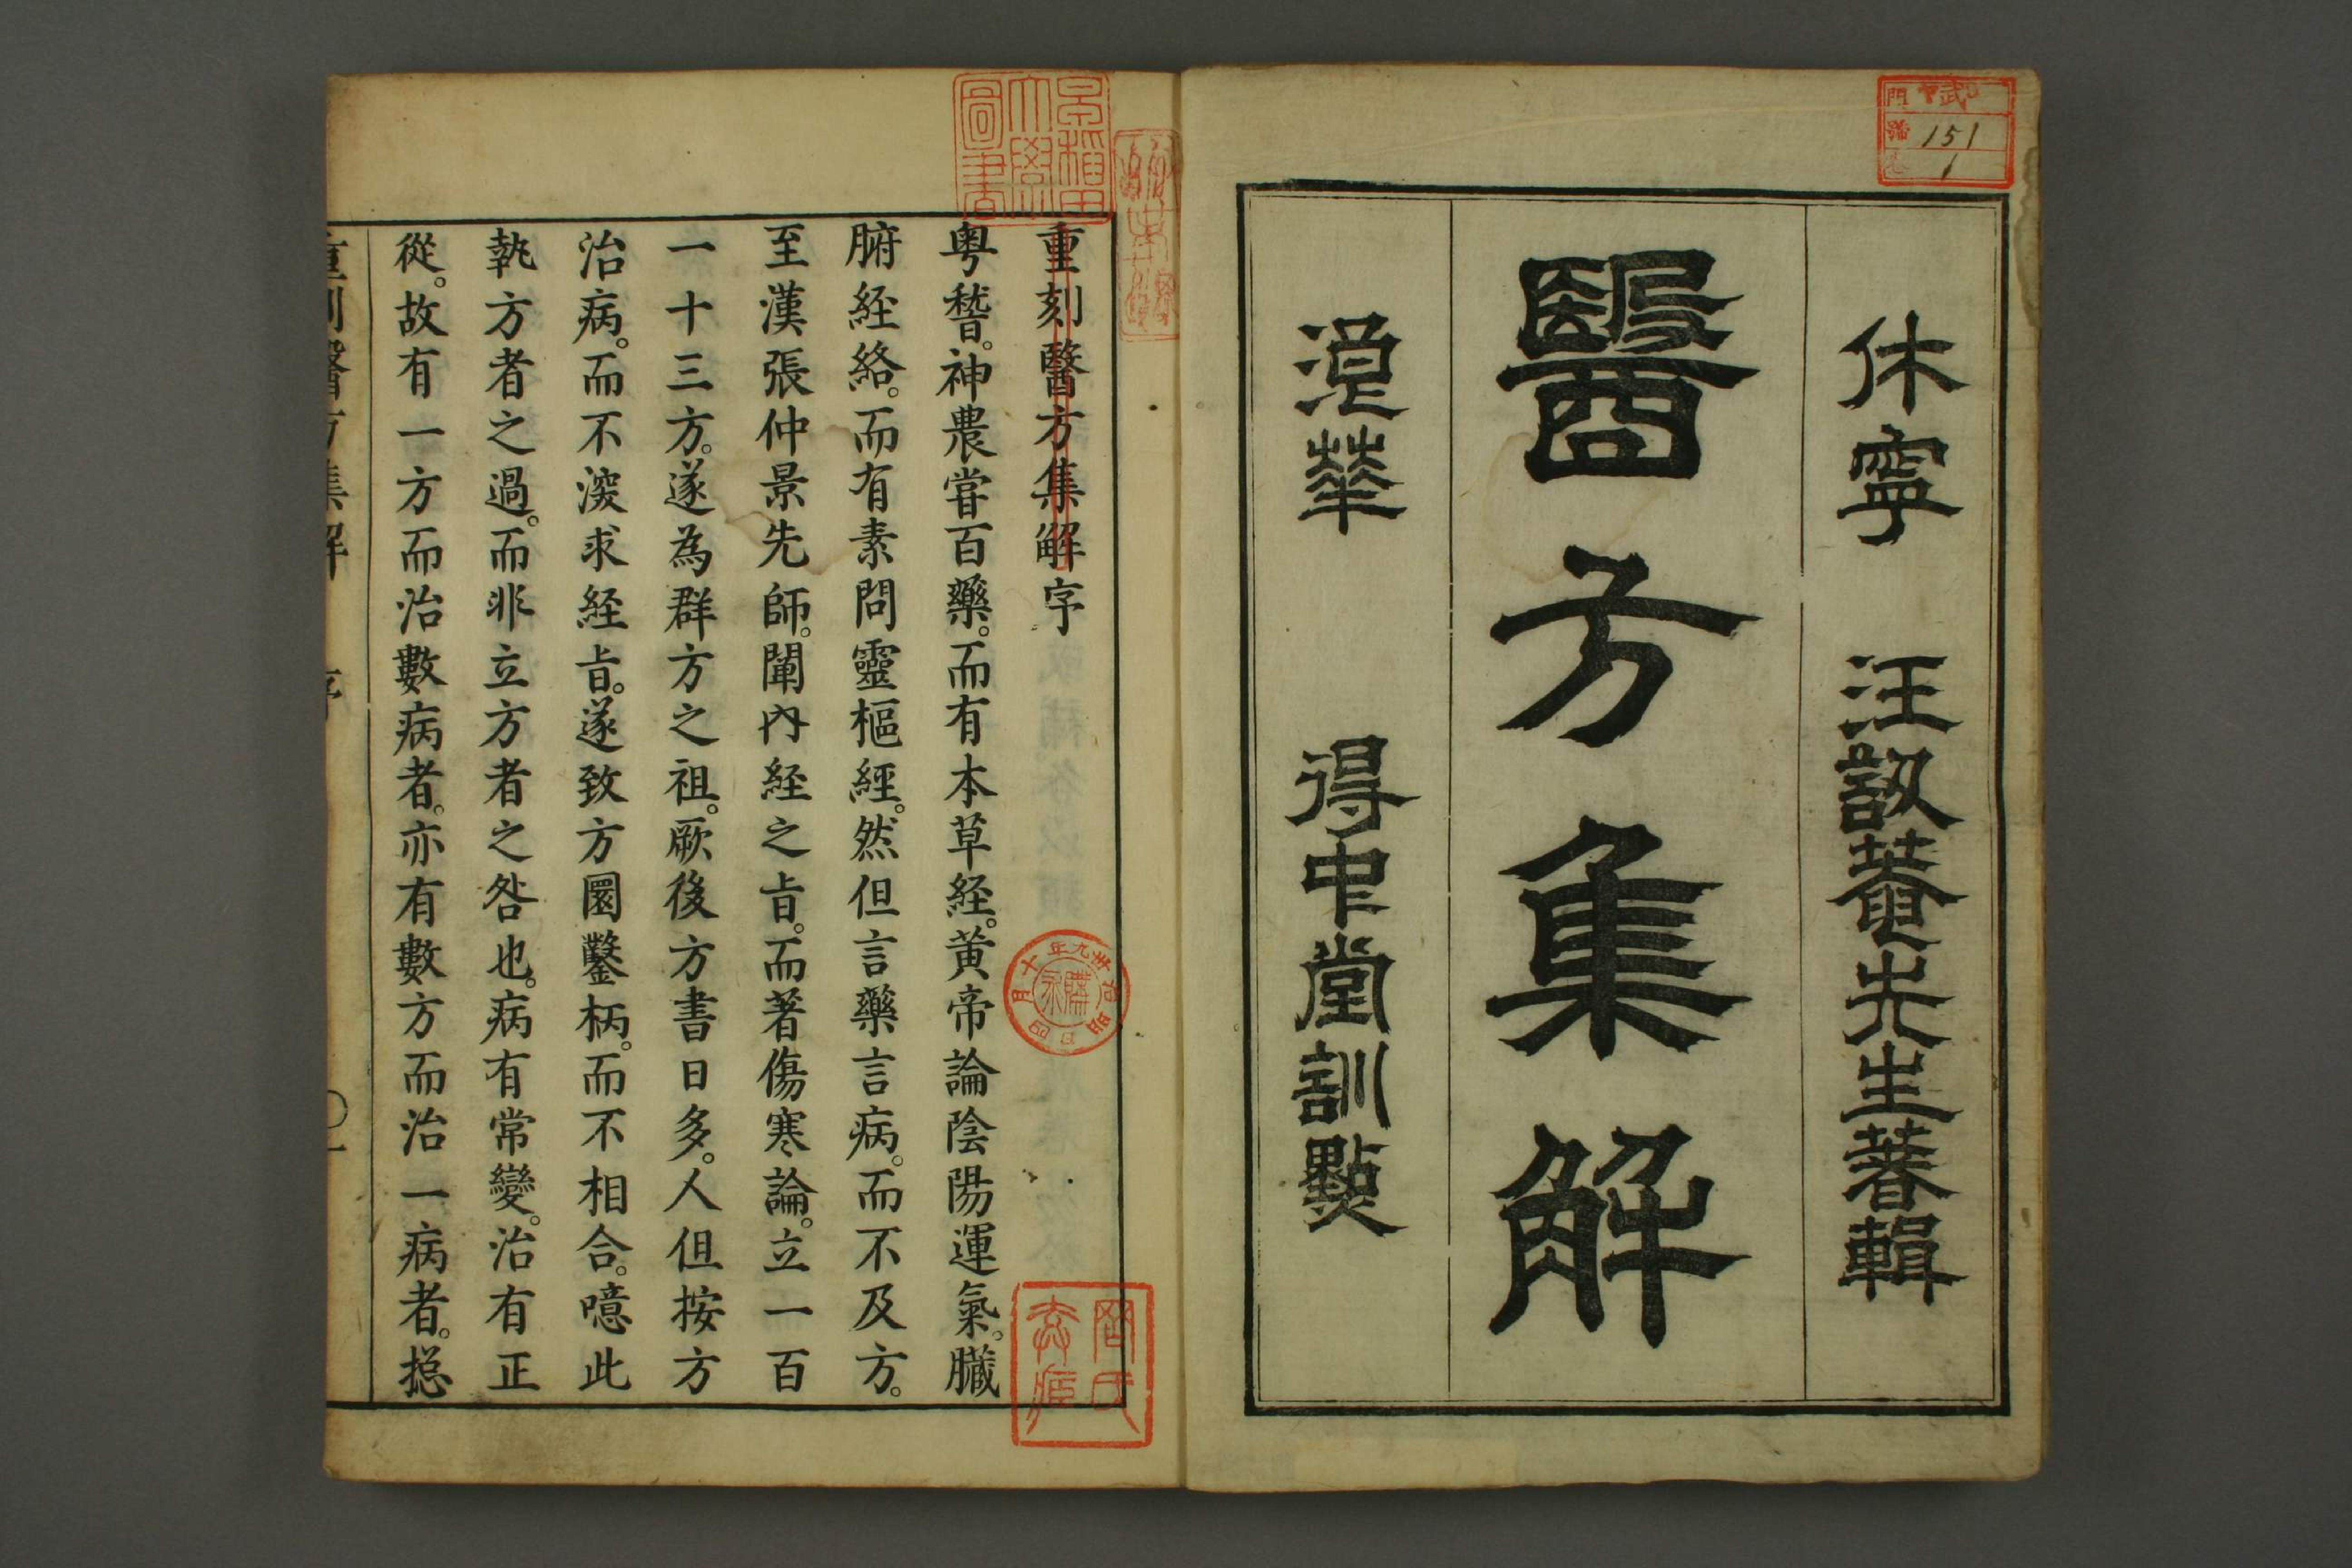 休寧 汪訒菴先生著輯
醫方集解
浪華 得中堂訓點
門
號 151
卷 1
重刻醫方集解序
粵稽。神農嘗百藥。而有本草経。黃帝論陰陽運氣。臟
腑経絡。而有素問靈樞經。然但言藥言病。而不及方。
至漢張仲景先師。闡內経之旨。而著傷寒論。立一百
一十三方。遂為群方之祖。厥後方書日多。人但按方
治病。而不深求経旨。遂致方圜鑿柄。而不相合。噫此
執方者之過。而非立方者之咎也。病有常變。治有正
從。故有一方而治數病者。亦有數方而治一病者。揔
重刻醫方集解 序 〇一
早稲田大學圖書
明治卅九年十月四日